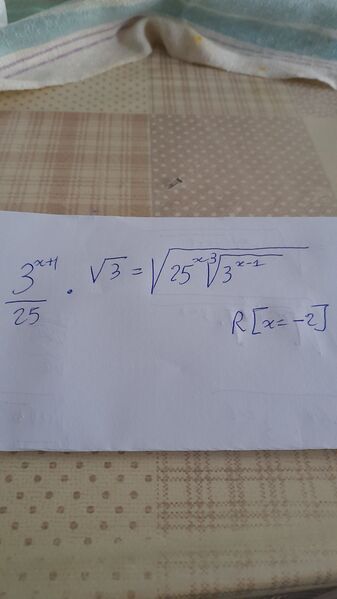 3^(x+1)/25 · √3 = √(25^x ∛(3^(x-1)))
R [x = -2]